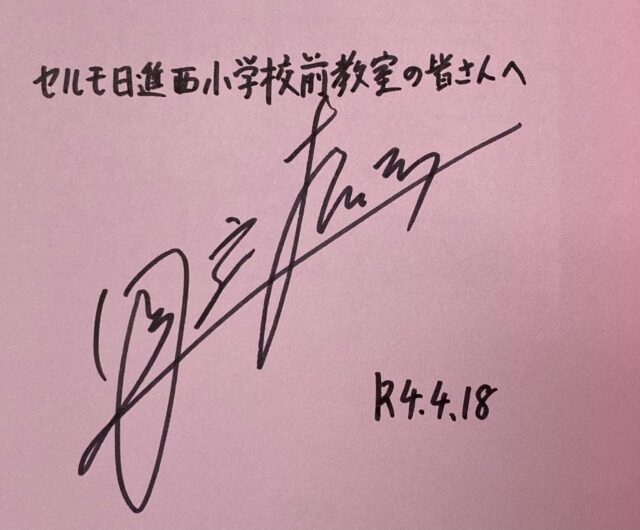 セルモ日進西小学校前教室の皆さんへ
R4.4.18